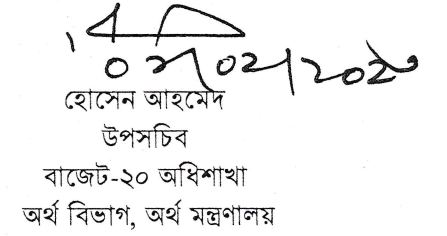 হোসেন আহমেদ
উপসচিব
বাজেট-২০ অধিশাখা
অর্থ বিভাগ, অর্থ মন্ত্রণালয়